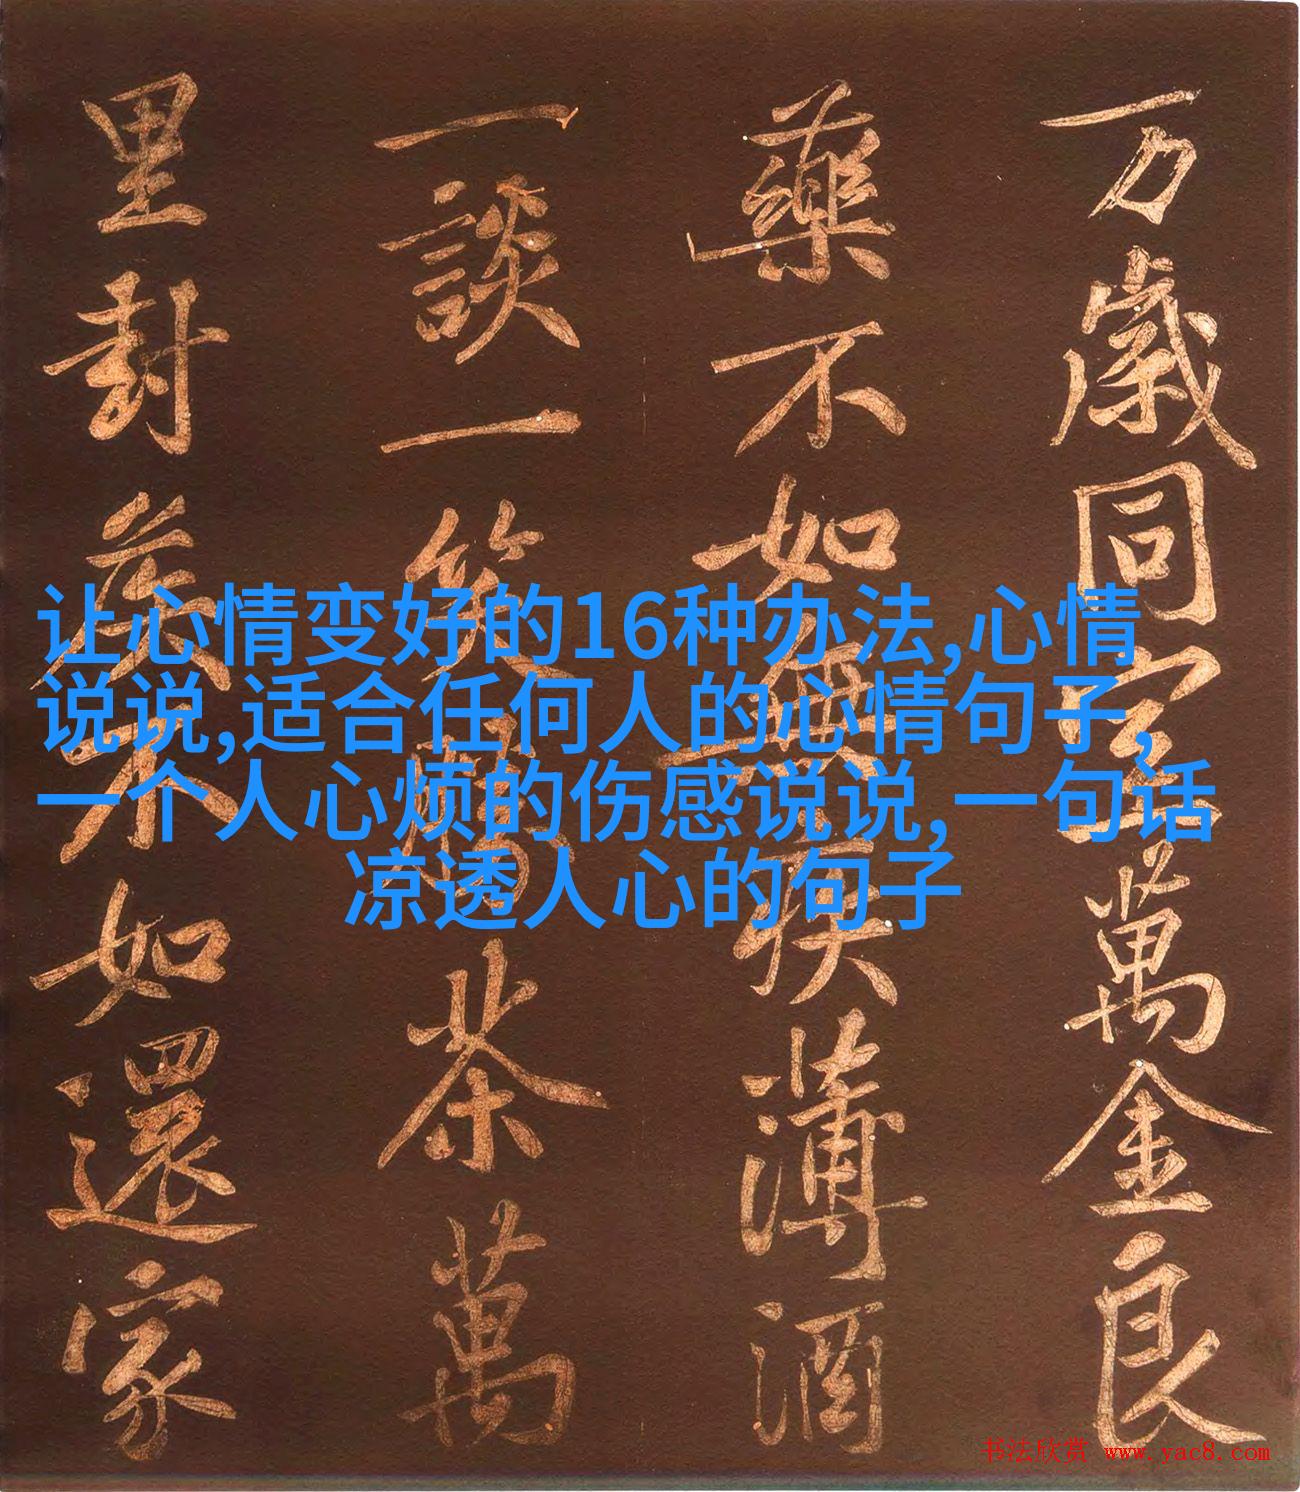 万歲同
萬金良
藥不如無
疾薄酒
一談一笑
茶萬
里封侯不如還家
让心情变好的16种办法,心情
说说,适合任何人的心情句子,
一个人心烦的伤感说说,一句话
凉透人心的句子
书法欣赏 www.yac8.com